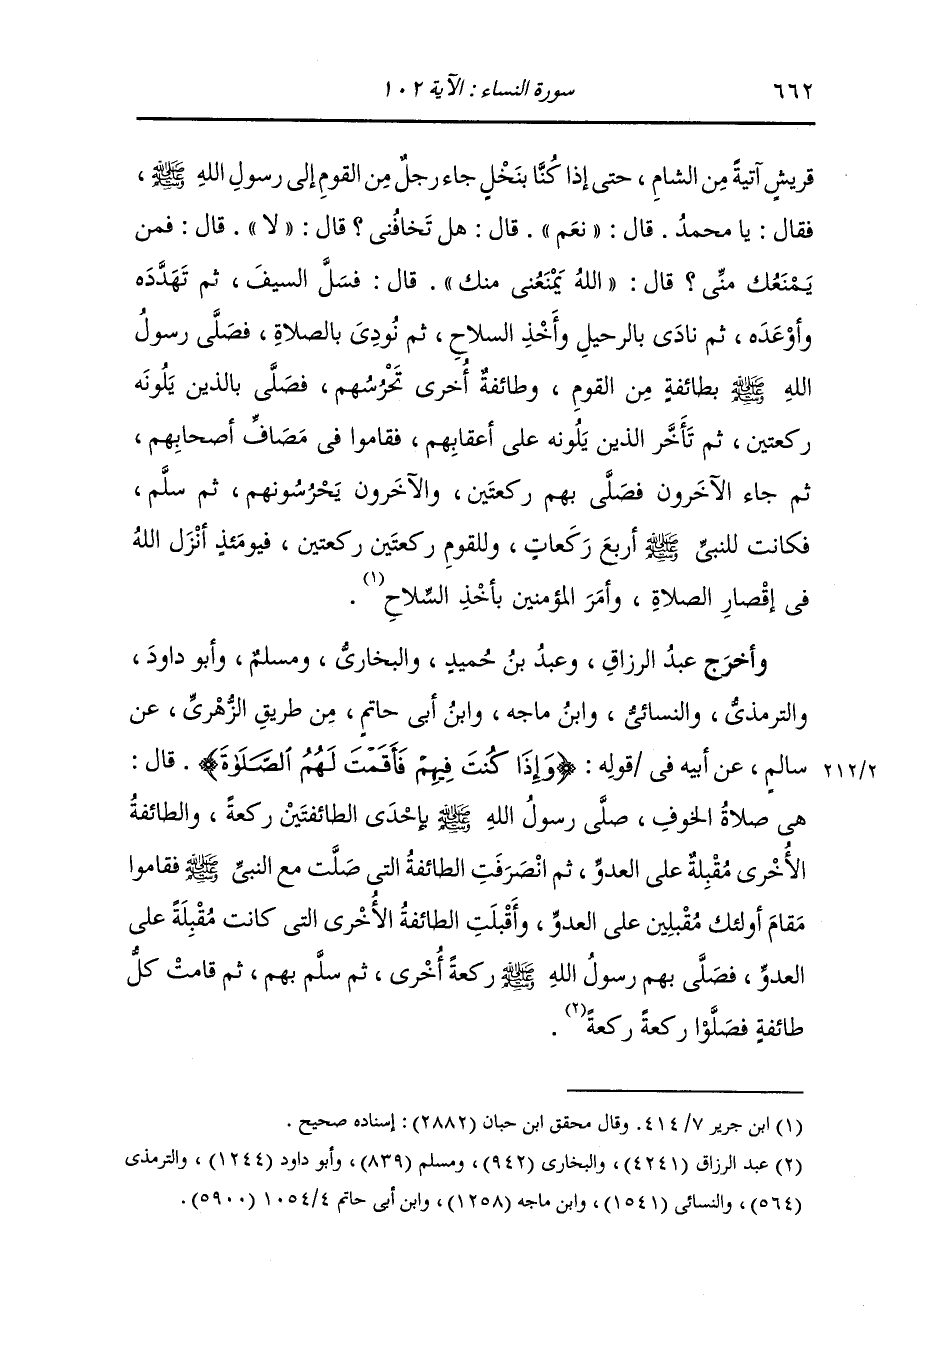 ٦٦٢ سورة النساء : الآية ١٠٢
قريشٍ آتيةً مِن الشامِ ، حتى إذا كُنَّا بنَخْلٍ جاء رجلٌ مِن القومِ إلى رسولِ اللهِ ﷺ ،
فقال : يا محمدُ . قال : « نعَم » . قال : هل تَخافُنى ؟ قال : « لا » . قال : فمن
يَمْنَعُك منِّى ؟ قال : « اللهُ يَمْنَعُنى منك » . قال : فسَلَّ السيفَ ، ثم تَهَدَّدَه
وأوْعَدَه ، ثم نادَى بالرحيلِ وأَخْذِ السلاحِ ، ثم نُودِىَ بالصلاةِ ، فصَلَّى رسولُ
اللهِ ﷺ بطائفةٍ مِن القومِ ، وطائفةٌ أُخرى تَحْرُسُهم ، فصَلَّى بالذين يَلُونَه
ركعتين ، ثم تَأَخَّر الذين يَلُونه على أعقابِهم ، فقاموا فى مَصَافِّ أصحابِهم ،
ثم جاء الآخَرون فصَلَّى بهم ركعتَين ، والآخَرون يَحْرُسُونهم ، ثم سلَّم ،
فكانت للنبىِّ ﷺ أربعَ رَكَعاتٍ ، وللقومِ ركعتَين ركعتين ، فيومَئذٍ أنْزَل اللهُ
فى إقْصارِ الصلاةِ ، وأمَرَ المؤمنين بأخْذِ السِّلاحِ(١) .
وأخرَج عبدُ الرزاقِ ، وعبدُ بنُ حُميدٍ ، والبخارىُّ ، ومسلمٌ ، وأبو داودَ ،
والترمذىُّ ، والنسائىُّ ، وابنُ ماجه ، وابنُ أبى حاتمٍ ، مِن طريقِ الزُّهْرىِّ ، عن
٢١٢/٢ سالمٍ ، عن أبيه فى /قولِه : ﴿وَإِذَا كُنتَ فِيهِمْ فَأَقَمْتَ لَهُمُ ٱلصَّلَوٰةَ﴾ . قال :
هى صلاةُ الخوفِ ، صلَّى رسولُ اللهِ ﷺ بإحْدَى الطائفتَيْن ركعةً ، والطائفةُ
الأُخْرى مُقْبِلةٌ على العدوِّ ، ثم انْصَرَفَتِ الطائفةُ التى صَلَّت مع النبىِّ ﷺ فقاموا
مَقامَ أولئك مُقْبِلِين على العدوِّ ، وأَقْبلَتِ الطائفةُ الأُخْرى التى كانت مُقْبِلَةً على
العدوِّ ، فصَلَّى بهم رسولُ اللهِ ﷺ ركعةً أُخْرى ، ثم سلَّم بهم ، ثم قامتْ كلُّ
طائفةٍ فصَلَّوْا ركعةً ركعةً(٢) .
(١) ابن جرير ٧/ ٤١٤. وقال محقق ابن حبان (٢٨٨٢) : إسناده صحيح .
(٢) عبد الرزاق (٤٢٤١) ، والبخارى (٩٤٢)، ومسلم (٨٣٩)، وأبو داود (١٢٤٤) ، والترمذى
(٥٦٤) ، والنسائى (١٥٤١) ، وابن ماجه (١٢٥٨)، وابن أبى حاتم ١٠٥٤/٤ (٥٩٠٠).